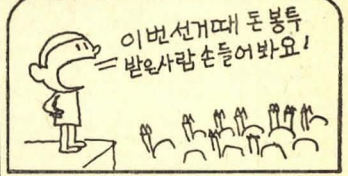 이번선거때 돈봉투
받은사람 손들어봐요!